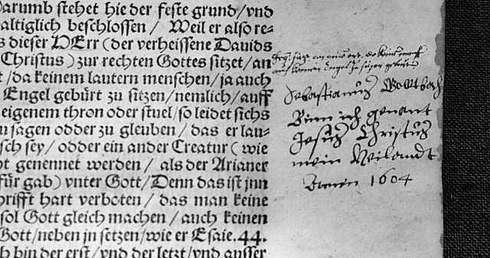 Darumb stehet hie der feste grund/vnd
altiglich beschlossen / Weil er also re⸗
s dieser HErr (der verheissene Dauids
Christus) zur rechten Gottes sitzet/an
t/da keinem lautern menschen/ja auch
Engel gebürt zu sitzen/nemlich/auff
eigenem thron oder stuel/so leidet sichs
u sagen odder zu gleuben/das er lau⸗
sch sey/odder ein ander Creatur (wie
t genennet werden/als der Arianer
für gab) vnter Gott/Denn das ist jnn
hrifft hart verboten/das man keine
sol Gott gleich machen/auch keinen
Gott/neben jn setzen/wie er Esaie.44.
h bin der erst/vnd der letzt/vnd ausser
Sebastianus
Binn ich genant
Jesus Christus
mein Heilandt
1604